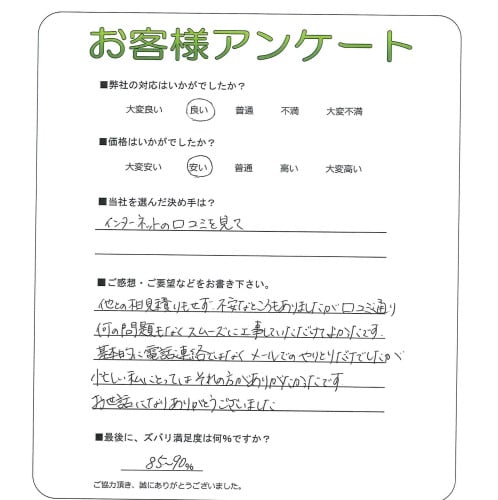 お客様アンケート
■弊社の対応はいかがでしたか？
大変良い 良い 普通 不満 大変不満
■価格はいかがでしたか？
大変安い 安い 普通 高い 大変高い
■当社を選んだ決め手は？
インターネットの口コミを見て
■ご感想・ご要望などをお書き下さい。
他との相見積りもせず、不安なところもありましたが口コミ通り
何の問題もなくスムーズに工事していただけてよかったです。
基本的に電話連絡ではなくメールでのやりとりだけでしたが
忙しい私にとってはそれの方がありがたかったです
お世話になりありがとうございました
■最後に、ズバリ満足度は何％ですか？
85〜90％
ご協力頂き、誠にありがとうございました。